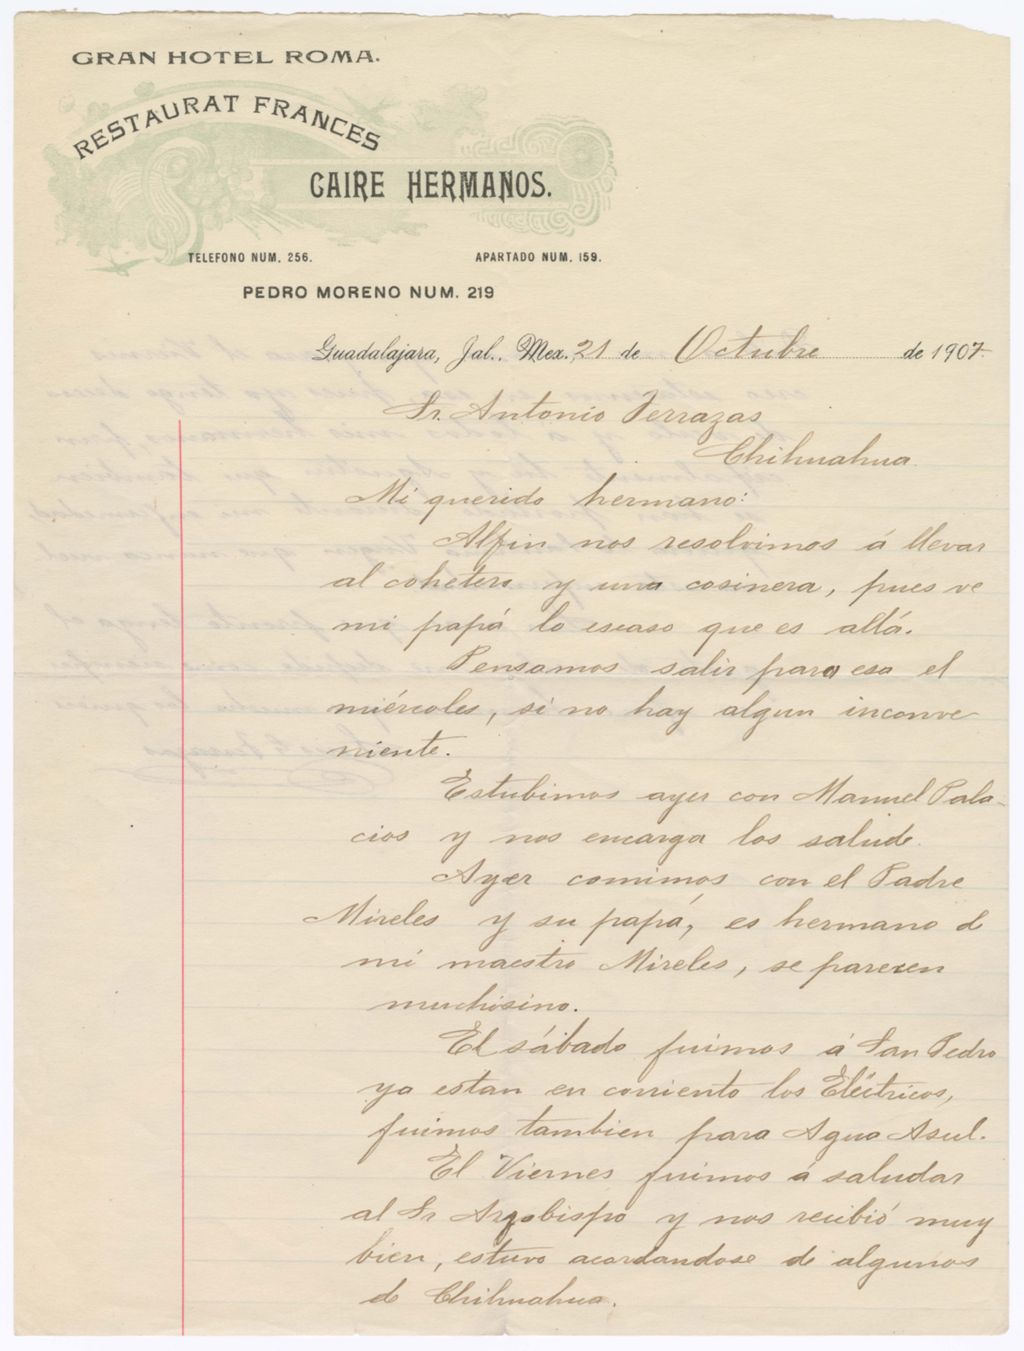 GRAN HOTEL ROMA.
RESTAURAT FRANCES
CAIRE HERMANOS.
TELEFONO NUM. 256. APARTADO NUM. 159.
PEDRO MORENO NUM. 219
Guadalajara, Jal., Mex. 21 de Octubre de 1907
Sr. Antonio Terrazas
Chihuahua.
Mi querido hermano:
Alfin nos resolvimos á llevar
al cohetero y una cosinera, pues ve
mi papá lo escaso que es allá.
Pensamos salir para esa el
miércoles, si no hay algun inconve
niente.
Estubimos ayer con Manuel Pala-
cios y nos encarga los salude.
Ayer comimos con el Padre
Mireles y su papá, es hermano de
mi maestro Mireles, se parecen
muchisimo.
El sábado fuimos á San Pedro
ya estan en corriento los Eléctricos,
fuimos tambien para Agua Asul.
El Viernes fuimos á saludar
al Sr Arzobispo y nos recibió muy
bien, estuvo acordandose de algunos
de Chihuahua.